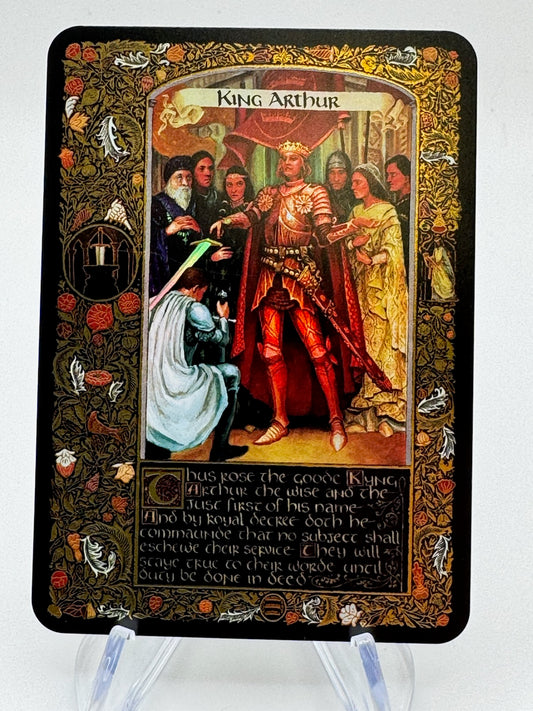 King Arthur
Thus rose the goode Kyng
Arthur the wise and the
Just first of his name
And by royal decree doth he
commaunde that no subject shall
eschewe their service They will
staye true to their worde until
duty be done in deed